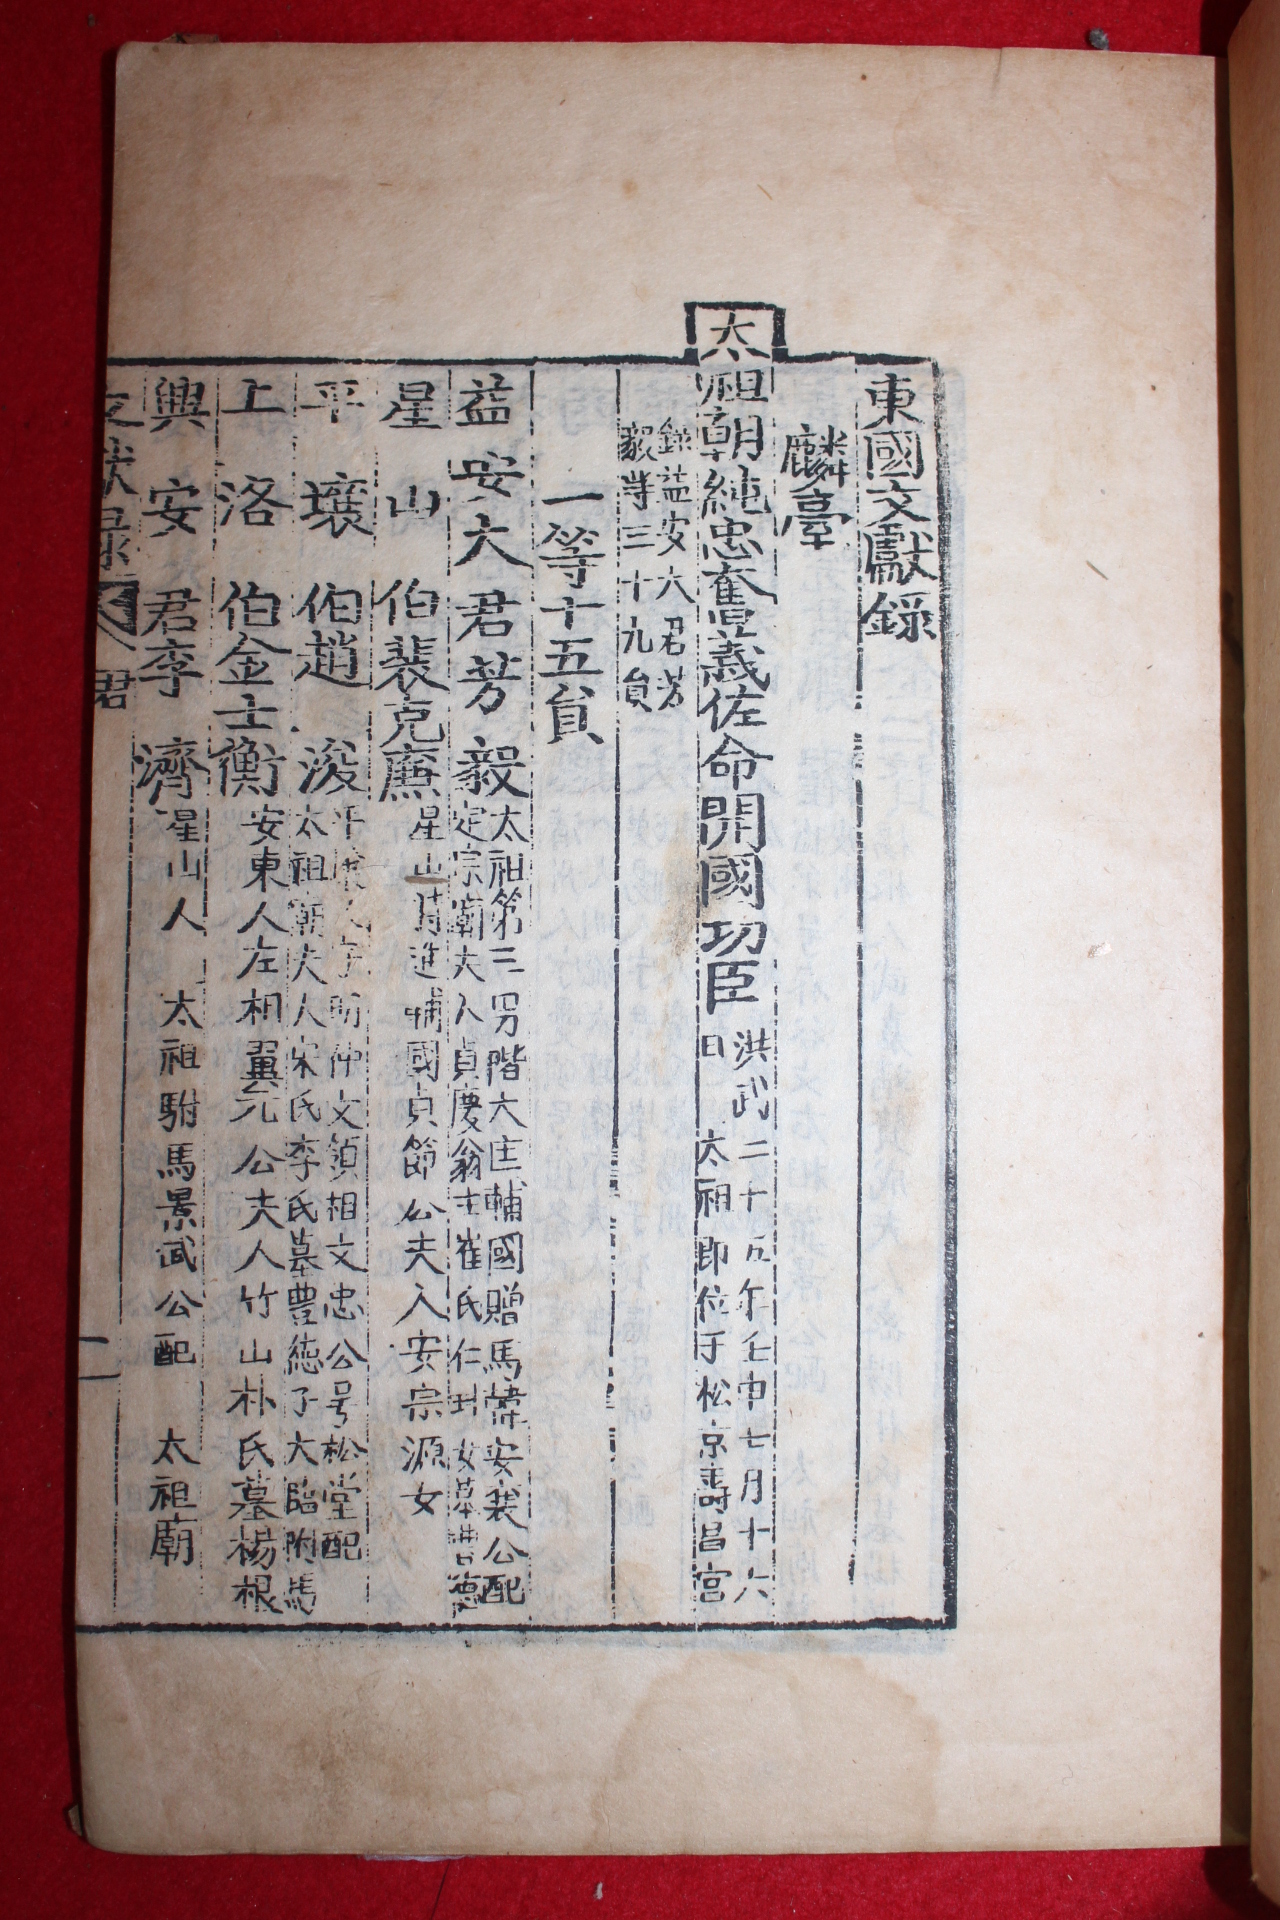 東國文獻錄
麟臺
太祖朝純忠奮義佐命開國功臣
洪武二十五年壬申七月十六
日 太祖卽位于松京壽昌宮
錄益安大君芳
毅等三十九員
一等十五員
益安大君芳毅
太祖第三男階大匡輔國贈馬韓安襄公配
定宗廟夫人貞慶翁主崔氏仁㺶女墓豊德
星山伯裴克廉
星山人特進輔國貞節公夫人安宗源女
平壤伯趙浚
平壤人字明仲文領相文忠公号松堂配
太祖廟夫人宋氏李氏墓豊德子大臨附馬
上洛伯金士衡
安東人左相翼元公夫人竹山朴氏墓楊根
興安君李濟
星山人 太祖駙馬景武公配 太祖廟
文獻錄 君
一